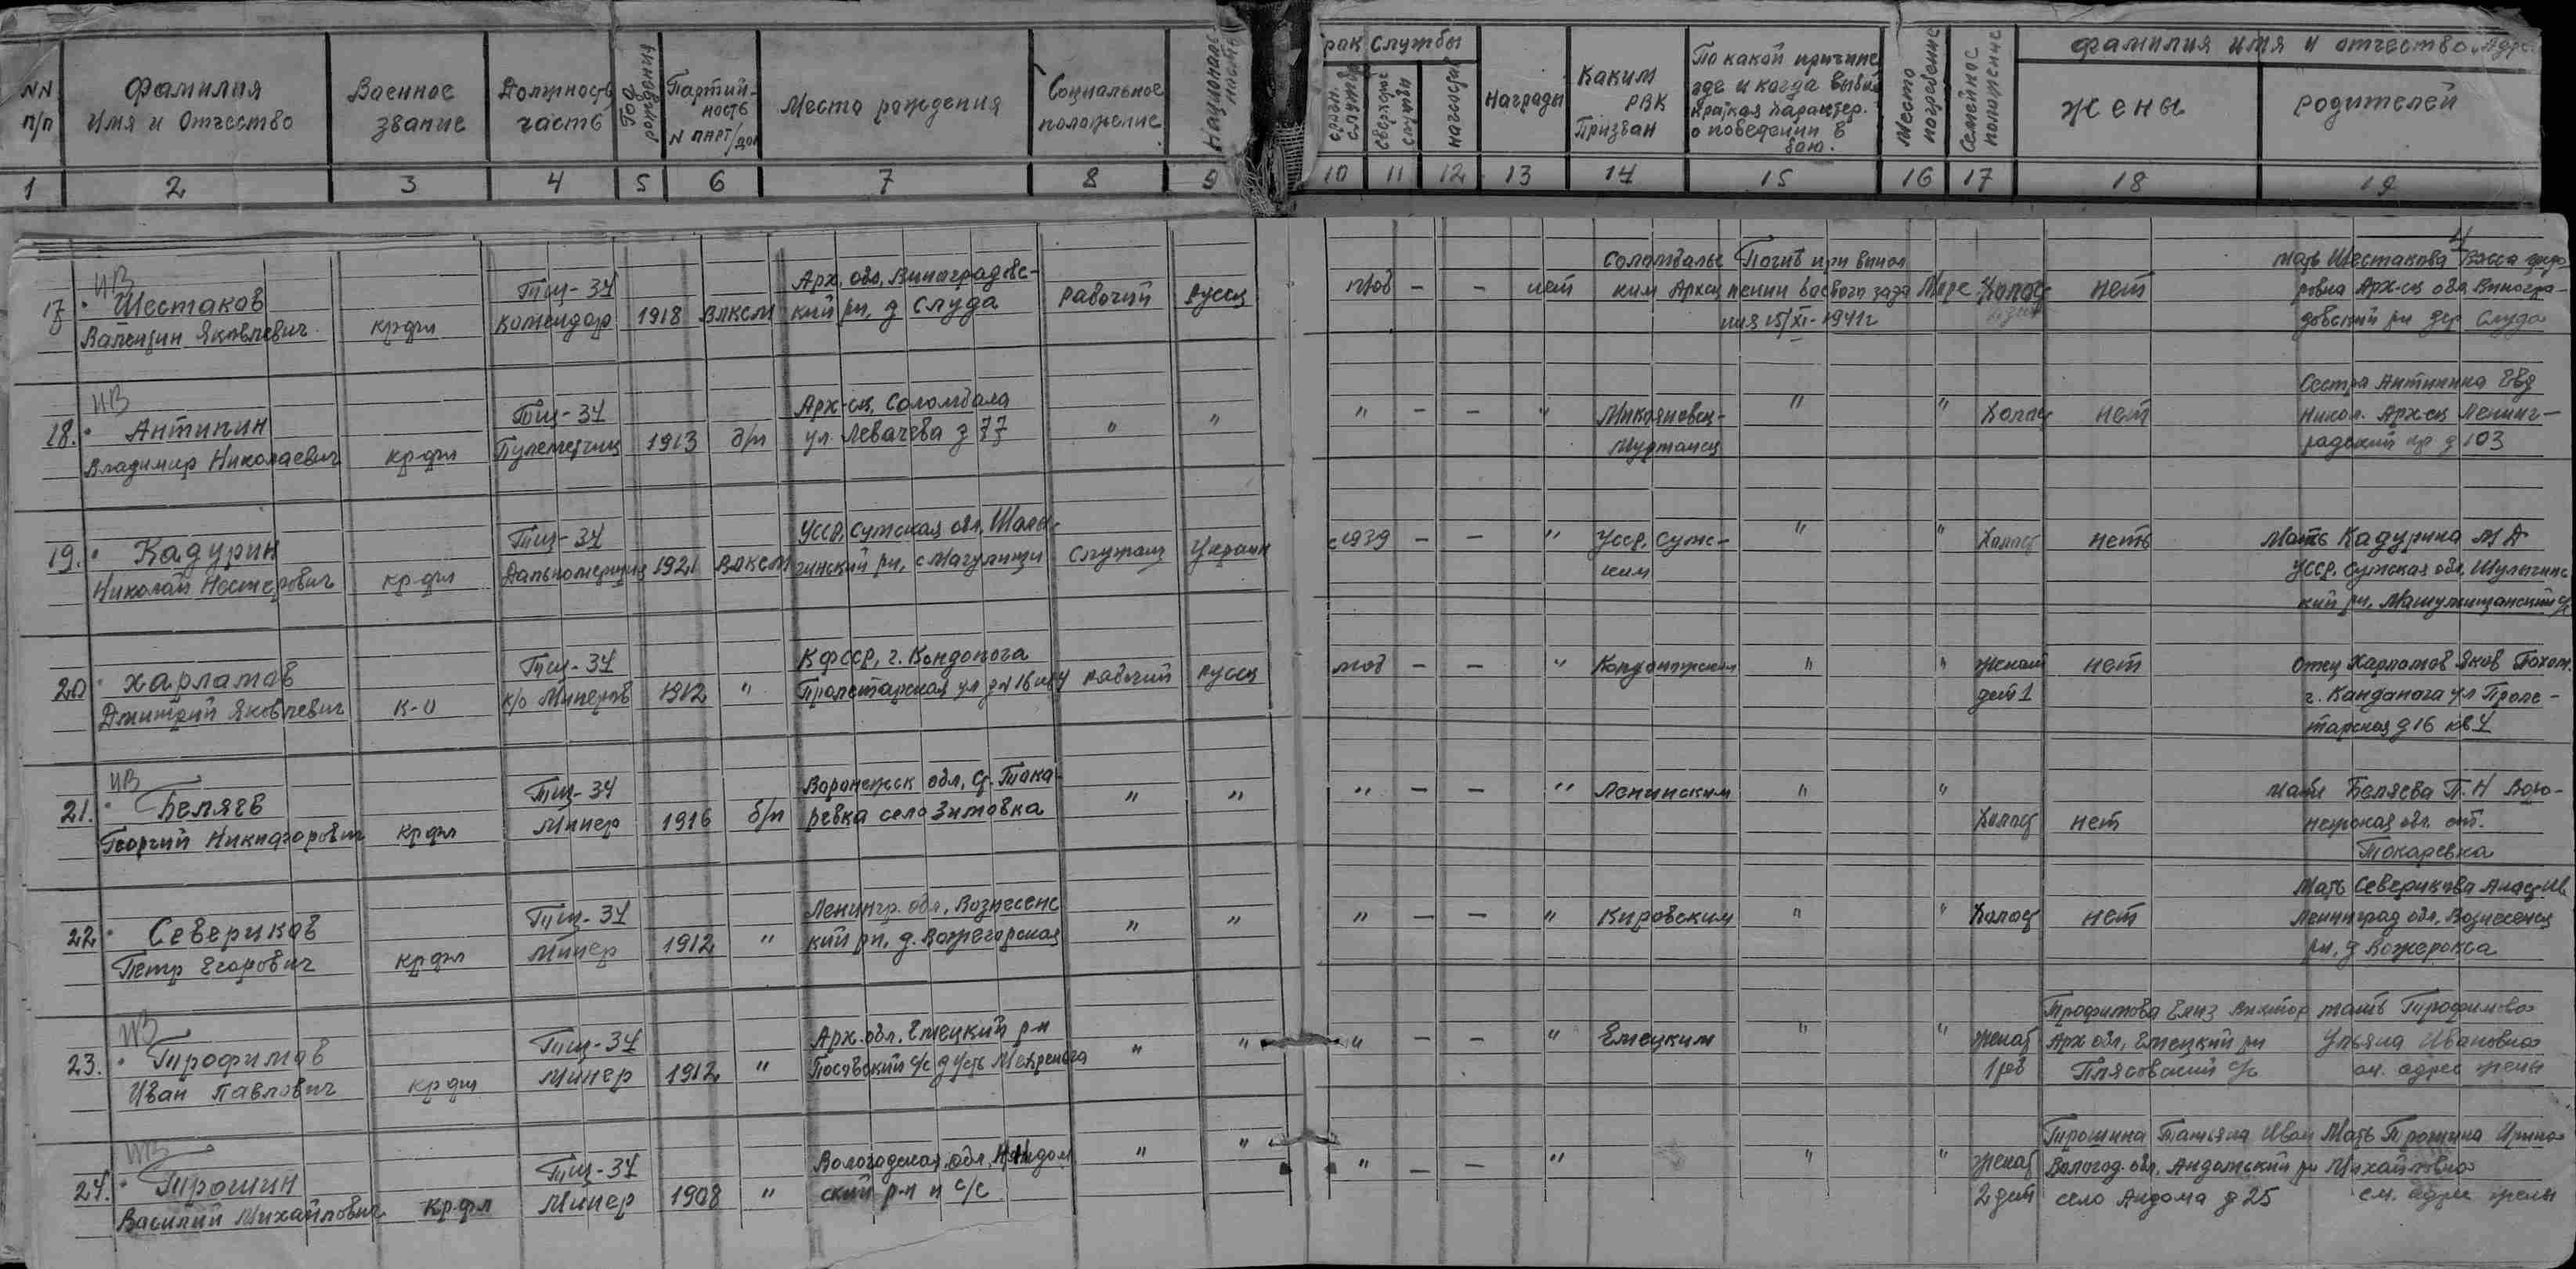 NN п/п
Фамилия Имя и Отчество
Военное звание
Должность часть
Год рождения
Партийность N парт/док
Место рождения
Социальное положение
Национальность
рак службы
срочн. служба
сверхсроч служба
Награды
Каким РВК Призван
По какой причине где и когда выбыл краткая характер. о поведении в бою.
Место погребение
Семейное положение
Фамилия имя и отчество, адре
жены
родителей
1 2 3 4 5 6 7 8 9 10 11 12 13 14 15 16 17 18 19
4
ИВ
Тщ-34 Арх. обл, Виноградовс- Соломбальс Погиб при выпол мать Шестакова Васса
17 Шестаков Комендор 1918 ВЛКСМ кий рн, д Слуда Рабочий Русск моб - - нет ким Архан нении боевого зада Море Холост нет Арх-ск обл Виногра-
Валентин Яковлевич кр-фл ния 15/XI-1941г довский рн дер Слуда
ИВ
Тщ-34 Арх-ск, Соломбала Сестра Антипина Евд
18. Антипин Пулеметчик 1913 б/п ул. Левачева д 77 " " " - - " Микояновск- " " Холост нет Никол. Арх-ск Ленинг-
Владимир Николаевич кр-фл Мурманск радский пр д 103
Тщ-34 УССР, Сумская обл,
19. Кадурин Дальномерщик 1921 ВЛКСМ гинский рн, с Служащ Украин с 1939 - - " Усср, Сумс- " " Холост нетъ Мать Кадурина М А
Николай Нестерович кр-фл ким УССР, Сумская обл,
кий рн,
Тщ-34 КФССР, г. Кондопога
20 Харламов к/о Минеров 1912 " Пролетарская ул д N 16 кв 4 рабочий Русск моб - - " Кондопожским " " женат нет Отец Харламов Яков
Дмитрий Яковлевич к-о дет 1 г. Кандапога ул Проле-
тарская д 16 кв 4
ИВ
Тщ-34 Воронежск обл, ст. Тока-
21. Беляев Минер 1916 б/п ревка село Зимовка " " " - - " Ленинским " " Холост нет мать Беляева П. Н Воро-
Георгий Никифорович кр фл нежская обл. ст.
Токаревка
Тщ-34 Ленингр. обл, Вознесенс Мать Северикова
22 Севериков Минер 1912 " кий рн, д. " " " - - " Кировским " " Холост нет Ленинград обл, Вознесенск
Петр Егорович кр фл рн, д Вожерокса
ИВ
Тщ-34 Арх. обл, Емецкий р-н Трофимова Елиз Виктор мать Трофимова
23. Трофимов Минер 1912 " с/с д Усть Мехреньга " " " - - " Емецким " " женат Арх обл, Емецкий рн Ульяна Ивановна
Иван Павлович кр фл 1 реб Плясовский с/с см. адрес жены
ИВ
Тщ-34 Вологодская обл, Трошина Татьяна Иван Мать Трошина
24. Трошин Минер 1908 " ский р-н с/с " " " - - " " " женат Вологод. обл, Андомский рн Михайловна
Василий Михайлович кр фл 2 дет село Андома д 25 см. адрес жены